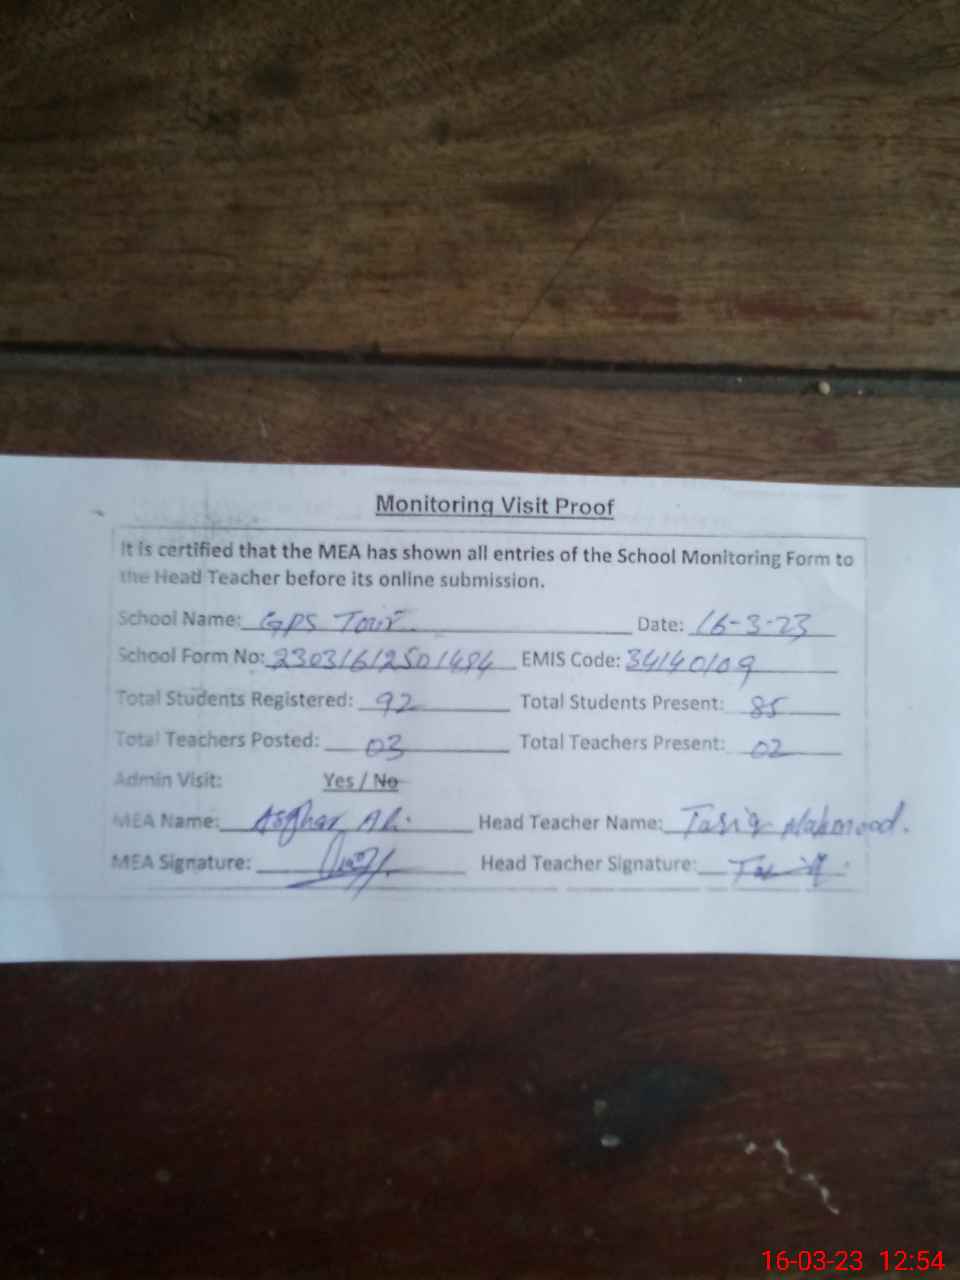 Monitoring Visit Proof
It is certified that the MEA has shown all entries of the School Monitoring Form to
the Head Teacher before its online submission.
School Name: GPS Tour Date: 16-3-23
School Form No: 23031612501484 EMIS Code: 34140109
Total Students Registered: 92 Total Students Present: 85
Total Teachers Posted: 03 Total Teachers Present: 02
Admin Visit: Yes / No
MEA Name: Asghar Ali Head Teacher Name: Tariq Mahmood.
MEA Signature: Head Teacher Signature:
16-03-23 12:54